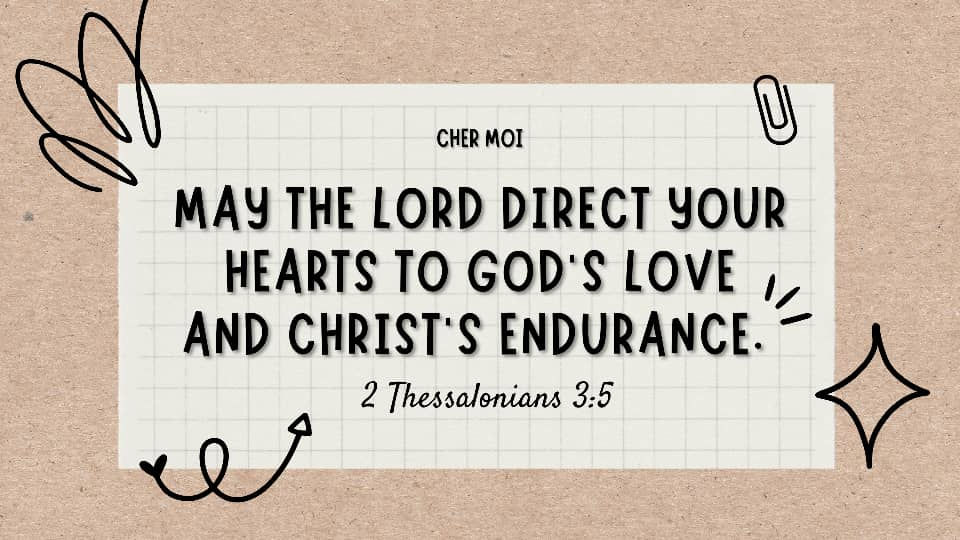 CHER MOI
MAY THE LORD DIRECT YOUR
HEARTS TO GOD'S LOVE
AND CHRIST'S ENDURANCE.
2 Thessalonians 3:5